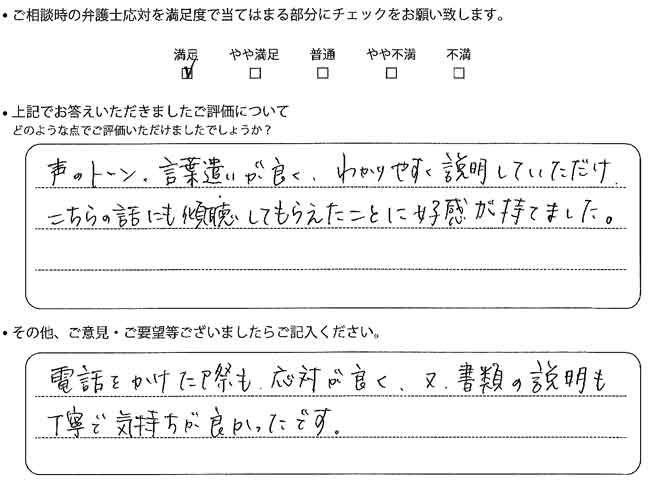 ・ご相談時の弁護士応対を満足度で当てはまる部分にチェックをお願い致します。
満足 やや満足 普通 やや不満 不満
☑ □ □ □ □
・上記でお答えいただきましたご評価について
どのような点でご評価いただけましたでしょうか？
声のトーン、言葉遣いが良く、わかりやすく説明していただけ、
こちらの話にも傾聴してもらえたことに好感が持てました。
・その他、ご意見・ご要望等ございましたらご記入ください。
電話をかけた際も、応対が良く、又、書類の説明も
丁寧で気持ちが良かったです。